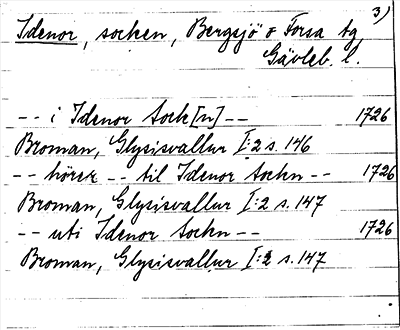 3)
Idenor, socken, Bergsjö o Forsa tg
Gävleb. l.
-- i Idenor Sock[n] -- 1726
Broman, Glysisvallur I:2 s. 146
-- hörer -- til Idenor Sockn -- 1726
Broman, Glysisvallur I:2 s. 147
-- uti Idenor Sockn -- 1726
Broman, Glysisvallur I:2 s. 147